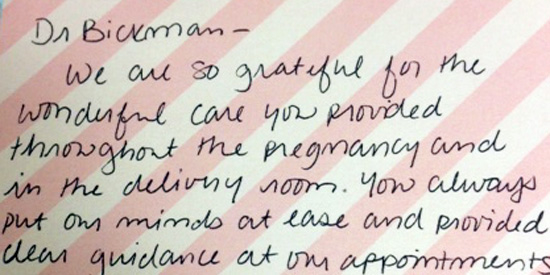 Dr Bickman-
We are so grateful for the
wonderful care you provided
throughout the pregnancy and
in the delivery room. You always
put our minds at ease and provided
clear guidance at our appointments